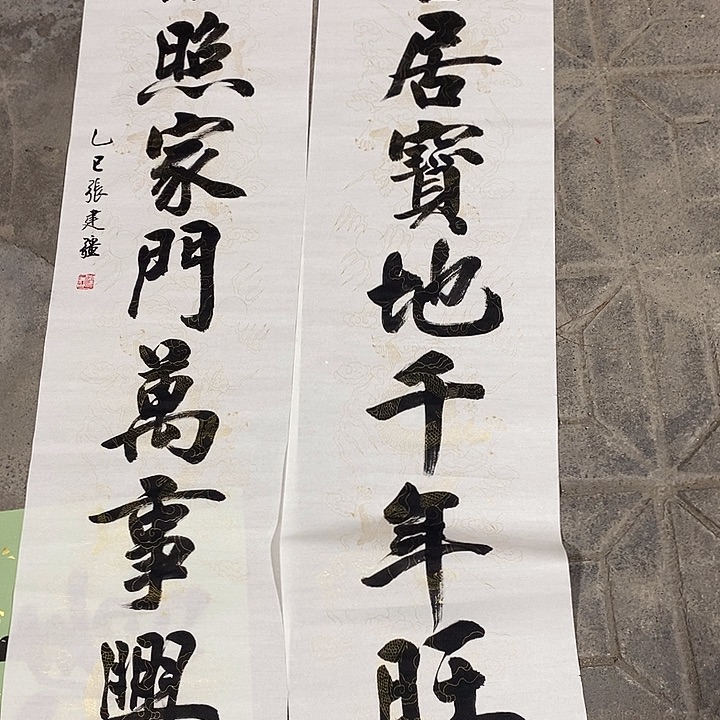 居寶地千年旺
照家門萬事興
乙巳張建疆